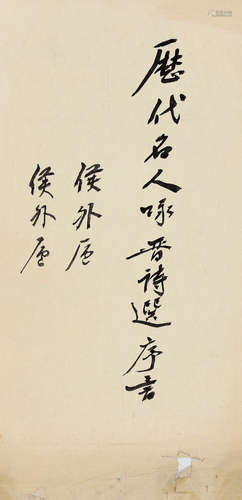 歷代名人咏晋詩選序言
侯外廬
侯外廬